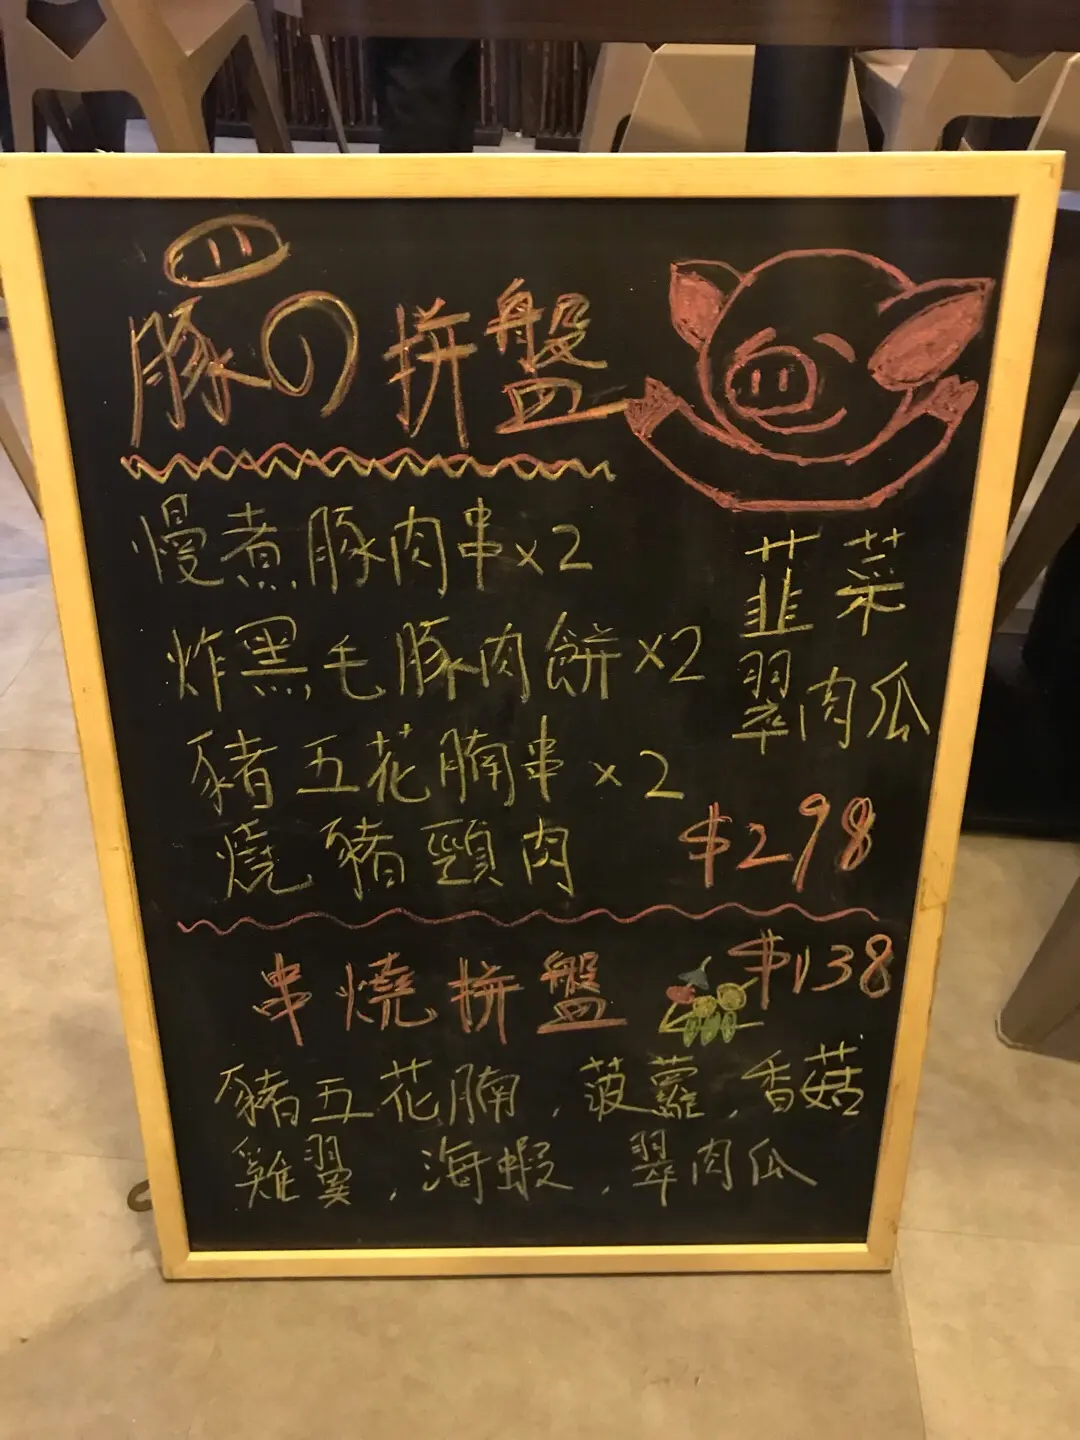 豚の拼盤
慢煮豚肉串x2
炸黑毛豚肉餅x2
豬五花腩串x2
燒豬頸肉
韮菜
翠肉瓜
$298
串燒拼盤
$138
豬五花腩，菠蘿，香菇
雞翼，海蝦，翠肉瓜